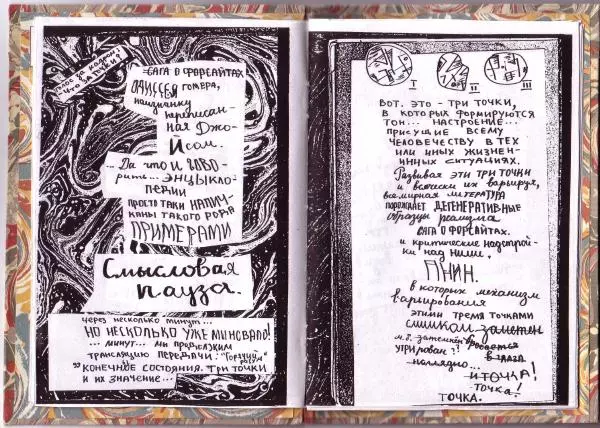 САГА О ФОРСАЙТАХ
ОДИССЕЯ ГОМЕРА,
наизнанку
переписан-
ная Джо-
йсом.
... Да что и гово-
рить... энцыкло-
педии
просто таки напич-
каны такого рода
ПРИМЕРАМИ
Смысловая
пауза.
через несколько минут...
НО НЕСКОЛЬКО УЖЕ МИНОВАЛО!
... минут... мы продолжим
трансляцию передачи: "Горгиции
КОНЕЧНОЕ СОСТОЯНИЕ. ТРИ ТОЧКИ
и их значение...
I II III
ВОТ. ЭТО - ТРИ ТОЧКИ,
В КОТОРЫХ ФОРМИРУЮТСЯ
ТОН... НАСТРОЕНИЕ...
ПРИСУЩИЕ ВСЕМУ
ЧЕЛОВЕЧЕСТВУ В ТЕХ
ИЛИ ИНЫХ ЖИЗНЕН-
ННЫХ СИТУАЦИЯХ.
Развивая эти три точки
и всячески их варьируя,
всемирная литература
порождает ДЕГЕНЕРАТИВНЫЕ
образцы реализма
САГА О ФОРСАЙТАХ.
и критические надстрой-
ки над ними.
ПНИН.
в которых механизм
варьирования
этими тремя точками
слишком заметен
м.б. затемнён
утрирован?! бросается
в глаза
наглядно...
и точка!
точка!
ТОЧКА.